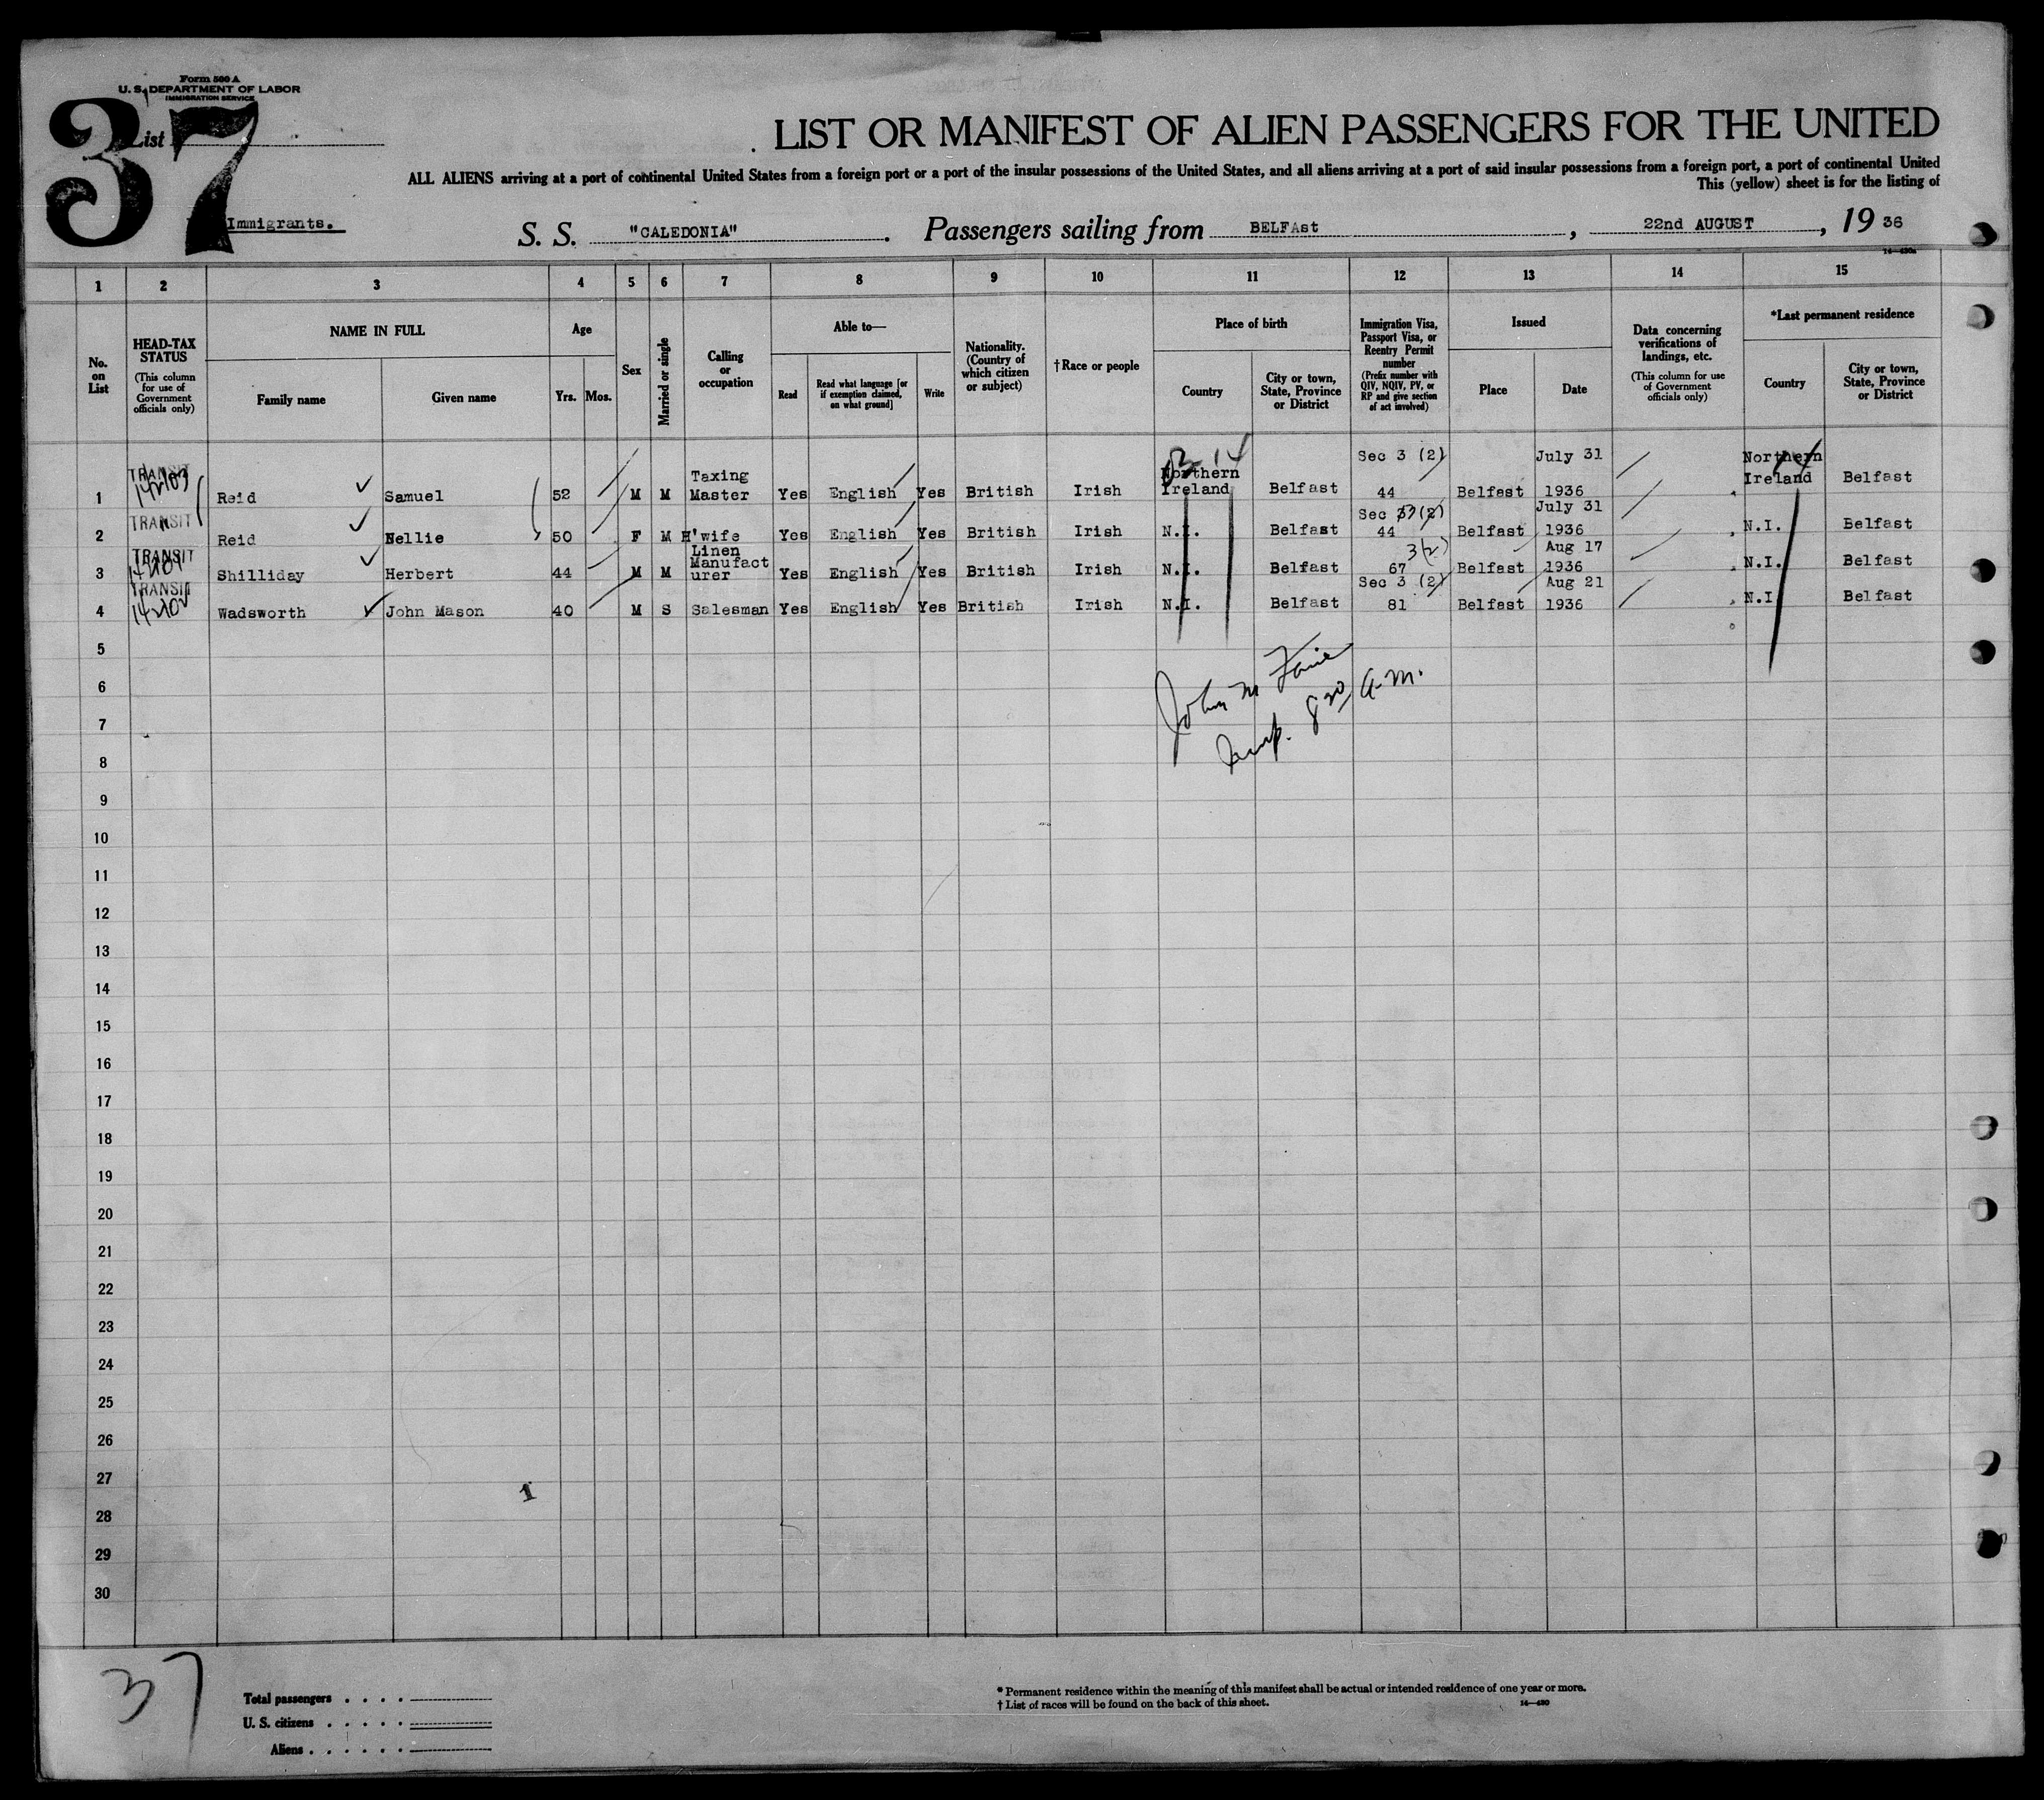 Form 500 A
U. S. DEPARTMENT OF LABOR
IMMIGRATION SERVICE
37
List
LIST OR MANIFEST OF ALIEN PASSENGERS FOR THE UNITED
ALL ALIENS arriving at a port of continental United States from a foreign port or a port of the insular possessions of the United States, and all aliens arriving at a port of said insular possessions from a foreign port, a port of continental United
This (yellow) sheet is for the listing of
Immigrants.
S. S. "CALEDONIA". Passengers sailing from BELFAst, 22nd AUGUST, 19 36
1 2 3 4 5 6 7 8 9 10 11 12 13 14 15
No. on List
HEAD-TAX STATUS (This column for use of Government officials only)
NAME IN FULL
Family name
Given name
Age
Yrs. Mos.
Sex
Married or single
Calling or occupation
Able to—
Read
Read what language [or if exemption claimed, on what ground]
Write
Nationality. (Country of which citizen or subject)
†Race or people
Place of birth
Country
City or town, State, Province or District
Immigration Visa, Passport Visa, or Reentry Permit number (Prefix number with QIV, NQIV, PV, or RP and give section of act involved)
Issued
Place
Date
Data concerning verifications of landings, etc. (This column for use of Government officials only)
*Last permanent residence
Country
City or town, State, Province or District
1 TRANSIT Reid Samuel 52 M M Taxing Master Yes English Yes British Irish Northern Ireland Belfast Sec 3 (2) 44 Belfast July 31 1936 Northern Ireland Belfast
2 TRANSIT Reid Nellie 50 F M H'wife Yes English Yes British Irish N.I. Belfast Sec 3 (2) 44 Belfast July 31 1936 N.I. Belfast
3 TRANSIT Shilliday Herbert 44 M M Linen Manufact urer Yes English Yes British Irish N.I. Belfast 3(2) 67 Belfast Aug 17 1936 N.I. Belfast
4 TRANSIT Wadsworth John Mason 40 M S Salesman Yes English Yes British Irish N.I. Belfast Sec 3 (2) 81 Belfast Aug 21 1936 N.I Belfast
5
6
7
8
9
10
11
12
13
14
15
16
17
18
19
20
21
22
23
24
25
26
27
28
29
30
John M
8 20 a.m.
1
37
Total passengers
U. S. citizens
Aliens
* Permanent residence within the meaning of this manifest shall be actual or intended residence of one year or more.
† List of races will be found on the back of this sheet.
14—430